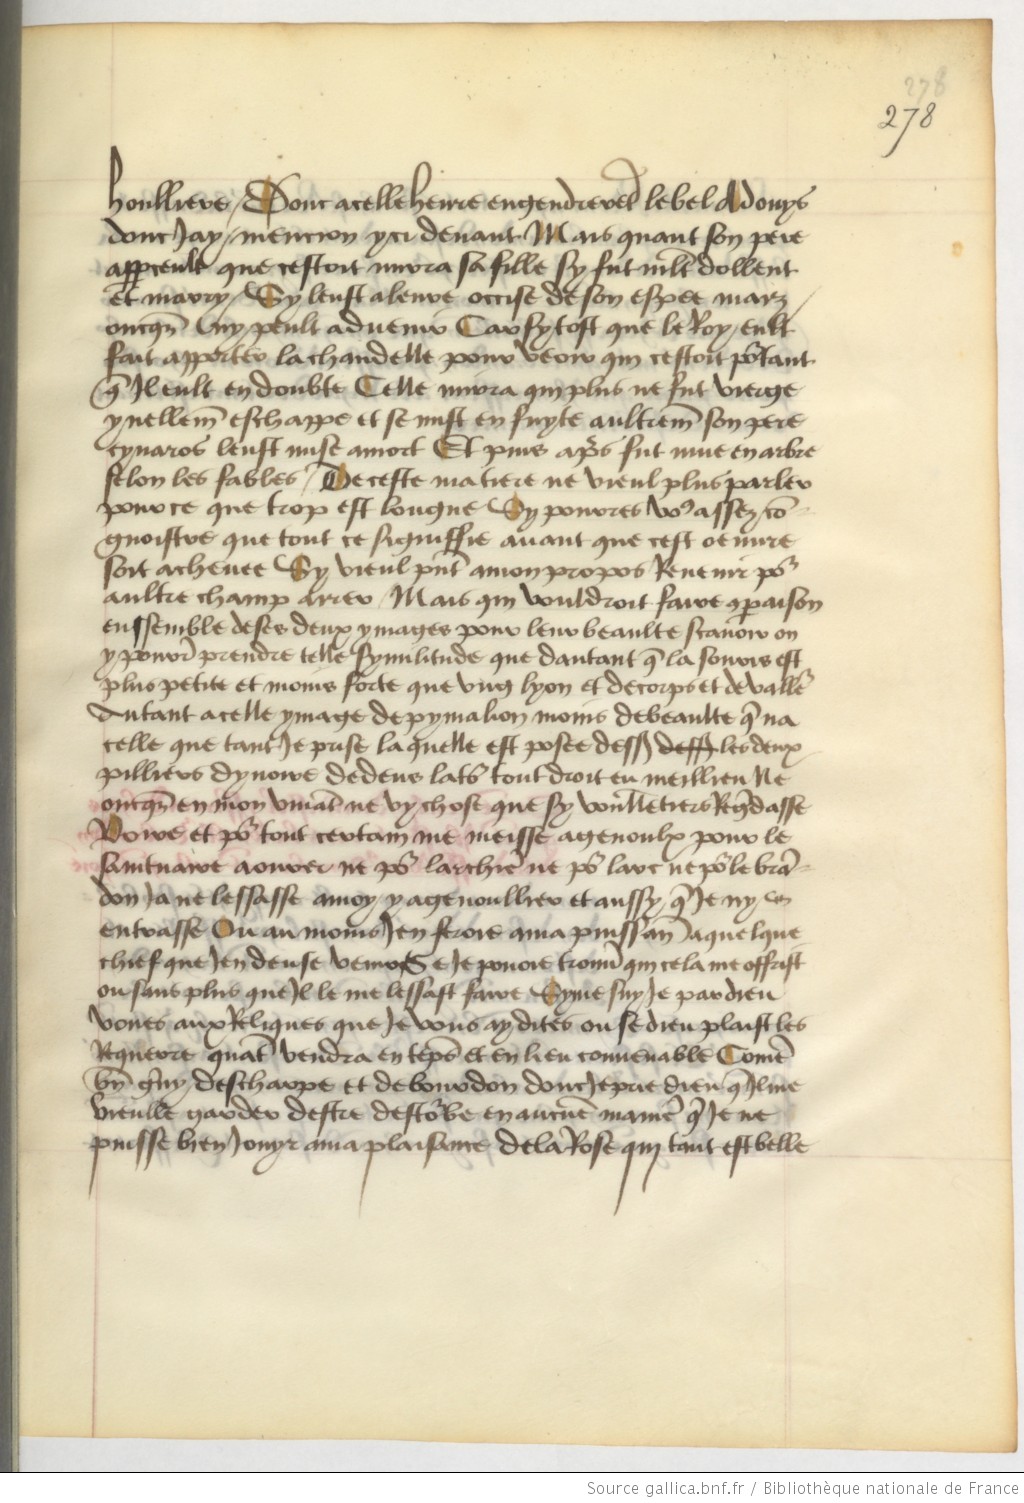 278
278
houlliere / Donc a celle heure engendrerēt le bel Adonys
donc Jay / mencion yci devant Mais quant son pere
apperceult que cestoit mirra sa fille sy fut mlt dollent
et marry / Sy leust a leure occise de son espee maiz /
oncqs ny peult advenir Car sy tost que le Roy eult
fait apporter la chandelle pour veoir qui cestoit portant
q̄ Jl eult en doubte Celle mirra qui plus ne fut vierge
ynellem̄ eschappe et se mist en fuyte aultrem̄ son pere
cynaros leust mise a mort Et puis apr̄s fut muee en arbre
selon les fables / De ceste matiere ne vieul plus parler
pour ce que trop est longue Sy pourres vo9 assez co-
gnoistre que tout ce signiffie avant que cest oeuvre
soit achevee Sy vieul pnt̄ a mon propos Revenir por
aultre champ arrer / Mais qui vouldroit faire qparaison
ensemble de ses deux ymages pour leur beaulte scavoir on
y pourr̄ prendre telle symilitude que dautant q̄ la souris est
plus petite et moins forte que ung lyon et de corps et de vallr̄
Autant a celle ymage de pymalion moins de beaulte q̄ na
celle que tant Je prise la quelle est posee dess9 dess9 les deux
pilliers dyvoire dedens lats tout droit eu meillieu Ne
oncqs en mon vivāt ne vy chose que sy voull̄etiers Regdasse
Voire et por tout certain me meisse a genoulx pour le
sainctuaire aourer ne por larchie ne por larc ne por le brā-
don Ja ne lessasse a moy y agenoullier et aussy q̄ Je ny
entrasse Ou au moins Jen feroie a ma puissan a quelque
chief que Jen deuse venir Se Je povoie trouv̄ qui cela me offrist
ou sans plus que Jl le me lessast faire Sy me suy Je par dieu
voues aux Reliques que Je vous ay dites ou se dieu plaist les
Requerre quāt vendra en tēps et en lieu convenable Comē
bn̄ gny descharpe et de bourdon donc Je prie dieu q̄ Jl me
vieulle garder destre destorbe en aucūe maniē q̄ Je ne
puisse bien Jouyr a ma plaisance de la Rose qui tant est belle
Source gallica.bnf.fr / Bibliothèque nationale de France